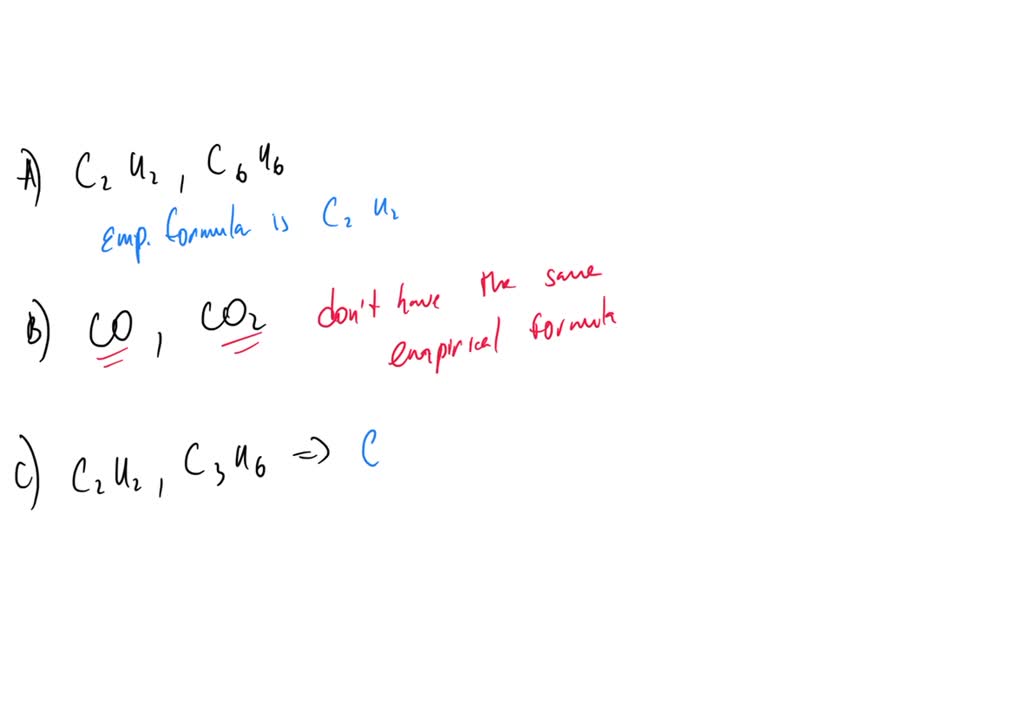 A) C₂H₂, C₆H₆
Emp. formula is C₂H₂
B) CO, CO₂ don't have the same
empirical formula
C) C₂H₂, C₃H₆ => C